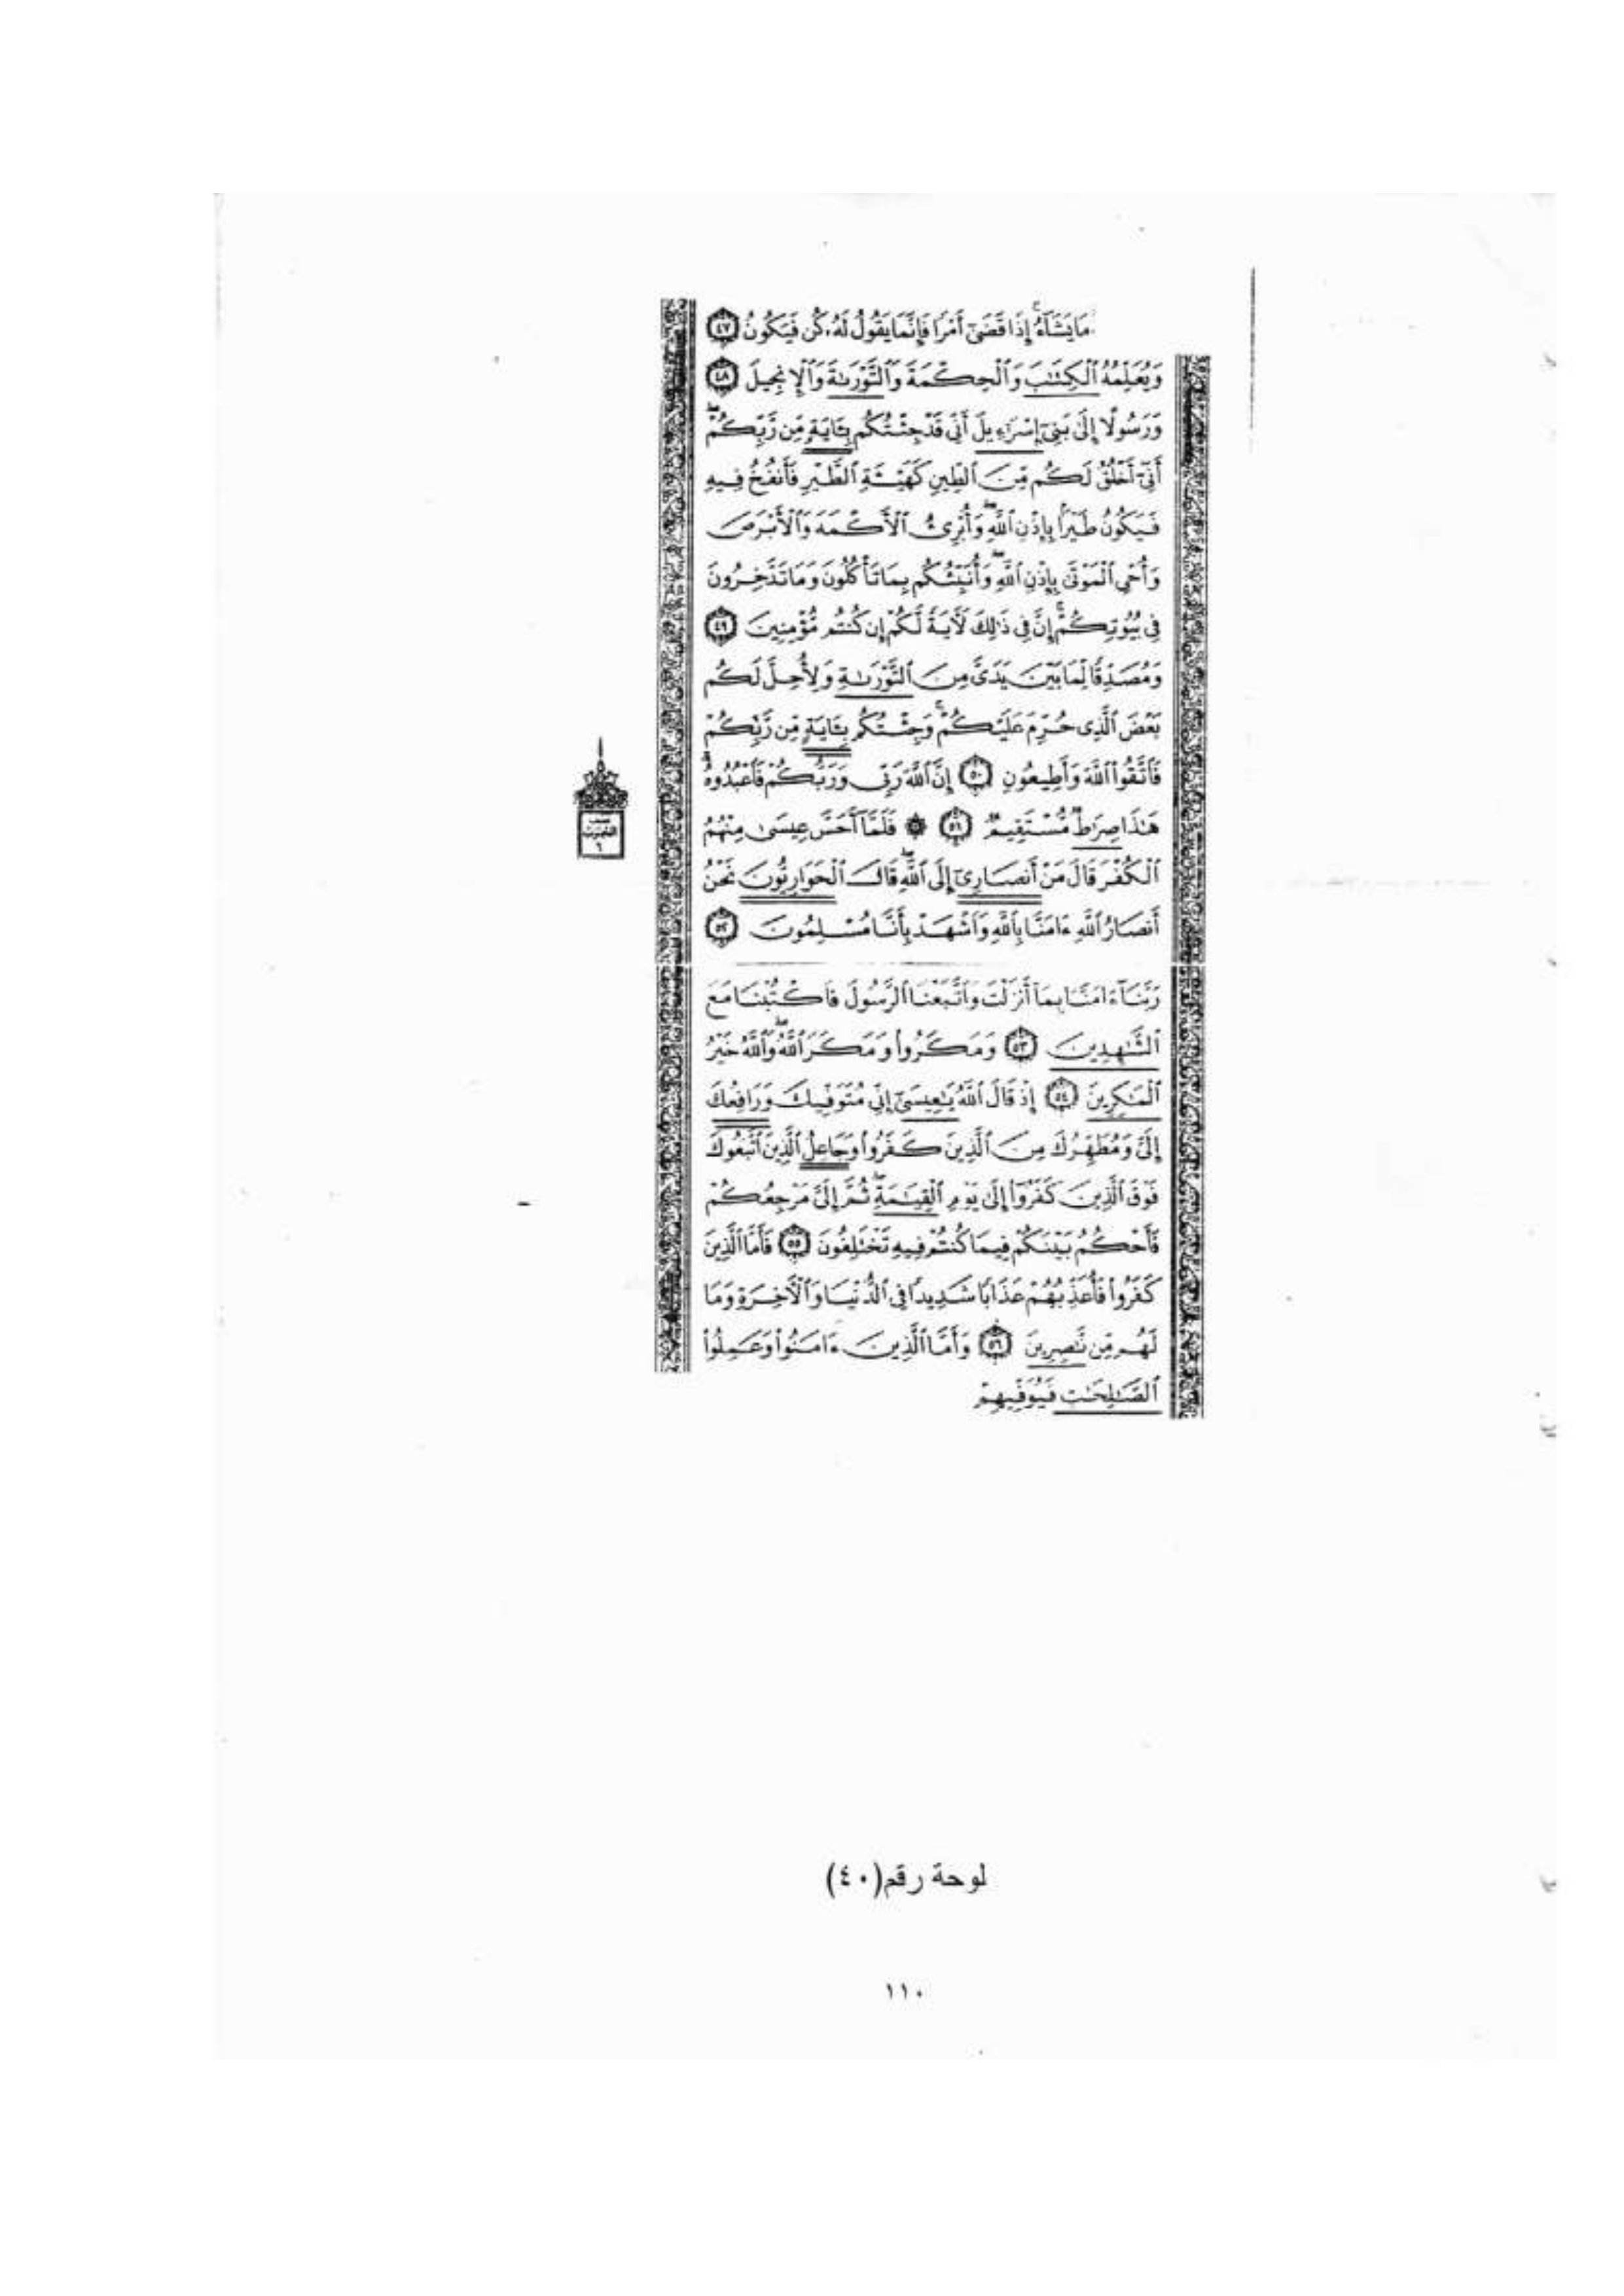 مَا يَشَآءُ ۚ إِذَا قَضَىٰٓ أَمْرًا فَإِنَّمَا يَقُولُ لَهُۥ كُن فَيَكُونُ ٤٧
وَيُعَلِّمُهُ ٱلْكِتَٰبَ وَٱلْحِكْمَةَ وَٱلتَّوْرَىٰةَ وَٱلْإِنجِيلَ ٤٨
وَرَسُولًا إِلَىٰ بَنِىٓ إِسْرَٰٓءِيلَ أَنِّى قَدْ جِئْتُكُم بِـَٔايَةٍ مِّن رَّبِّكُمْ ۖ
أَنِّىٓ أَخْلُقُ لَكُم مِّنَ ٱلطِّينِ كَهَيْـَٔةِ ٱلطَّيْرِ فَأَنفُخُ فِيهِ
فَيَكُونُ طَيْرًۢا بِإِذْنِ ٱللَّهِ ۖ وَأُبْرِئُ ٱلْأَكْمَهَ وَٱلْأَبْرَصَ
وَأُحْىِ ٱلْمَوْتَىٰ بِإِذْنِ ٱللَّهِ ۖ وَأُنَبِّئُكُم بِمَا تَأْكُلُونَ وَمَا تَدَّخِرُونَ
فِى بُيُوتِكُمْ ۚ إِنَّ فِى ذَٰلِكَ لَـَٔايَةً لَّكُمْ إِن كُنتُم مُّؤْمِنِينَ ٤٩
وَمُصَدِّقًا لِّمَا بَيْنَ يَدَىَّ مِنَ ٱلتَّوْرَىٰةِ وَلِأُحِلَّ لَكُم
بَعْضَ ٱلَّذِى حُرِّمَ عَلَيْكُمْ ۚ وَجِئْتُكُم بِـَٔايَةٍ مِّن رَّبِّكُمْ
فَٱتَّقُوا۟ ٱللَّهَ وَأَطِيعُونِ ٥٠ إِنَّ ٱللَّهَ رَبِّى وَرَبُّكُمْ فَٱعْبُدُوهُ ۗ
هَٰذَا صِرَٰطٌ مُّسْتَقِيمٌ ٥١ ۞ فَلَمَّآ أَحَسَّ عِيسَىٰ مِنْهُمُ
ٱلْكُفْرَ قَالَ مَنْ أَنصَارِىٓ إِلَى ٱللَّهِ ۖ قَالَ ٱلْحَوَارِيُّونَ نَحْنُ
أَنصَارُ ٱللَّهِ ءَامَنَّا بِٱللَّهِ وَٱشْهَدْ بِأَنَّا مُسْلِمُونَ ٥٢
رَبَّنَآ ءَامَنَّا بِمَآ أَنزَلْتَ وَٱتَّبَعْنَا ٱلرَّسُولَ فَٱكْتُبْنَا مَعَ
ٱلشَّٰهِدِينَ ٥٣ وَمَكَرُوا۟ وَمَكَرَ ٱللَّهُ ۖ وَٱللَّهُ خَيْرُ
ٱلْمَٰكِرِينَ ٥٤ إِذْ قَالَ ٱللَّهُ يَٰعِيسَىٰٓ إِنِّى مُتَوَفِّيكَ وَرَافِعُكَ
إِلَىَّ وَمُطَهِّرُكَ مِنَ ٱلَّذِينَ كَفَرُوا۟ وَجَاعِلُ ٱلَّذِينَ ٱتَّبَعُوكَ
فَوْقَ ٱلَّذِينَ كَفَرُوٓا۟ إِلَىٰ يَوْمِ ٱلْقِيَٰمَةِ ۖ ثُمَّ إِلَىَّ مَرْجِعُكُمْ
فَأَحْكُمُ بَيْنَكُمْ فِيمَا كُنتُمْ فِيهِ تَخْتَلِفُونَ ٥٥ فَأَمَّا ٱلَّذِينَ
كَفَرُوا۟ فَأُعَذِّبُهُمْ عَذَابًا شَدِيدًا فِى ٱلدُّنْيَا وَٱلْـَٔاخِرَةِ وَمَا
لَهُم مِّن نَّٰصِرِينَ ٥٦ وَأَمَّا ٱلَّذِينَ ءَامَنُوا۟ وَعَمِلُوا۟
ٱلصَّٰلِحَٰتِ فَيُوَفِّيهِمْ
لوحة رقم(٤٠)
١١٠